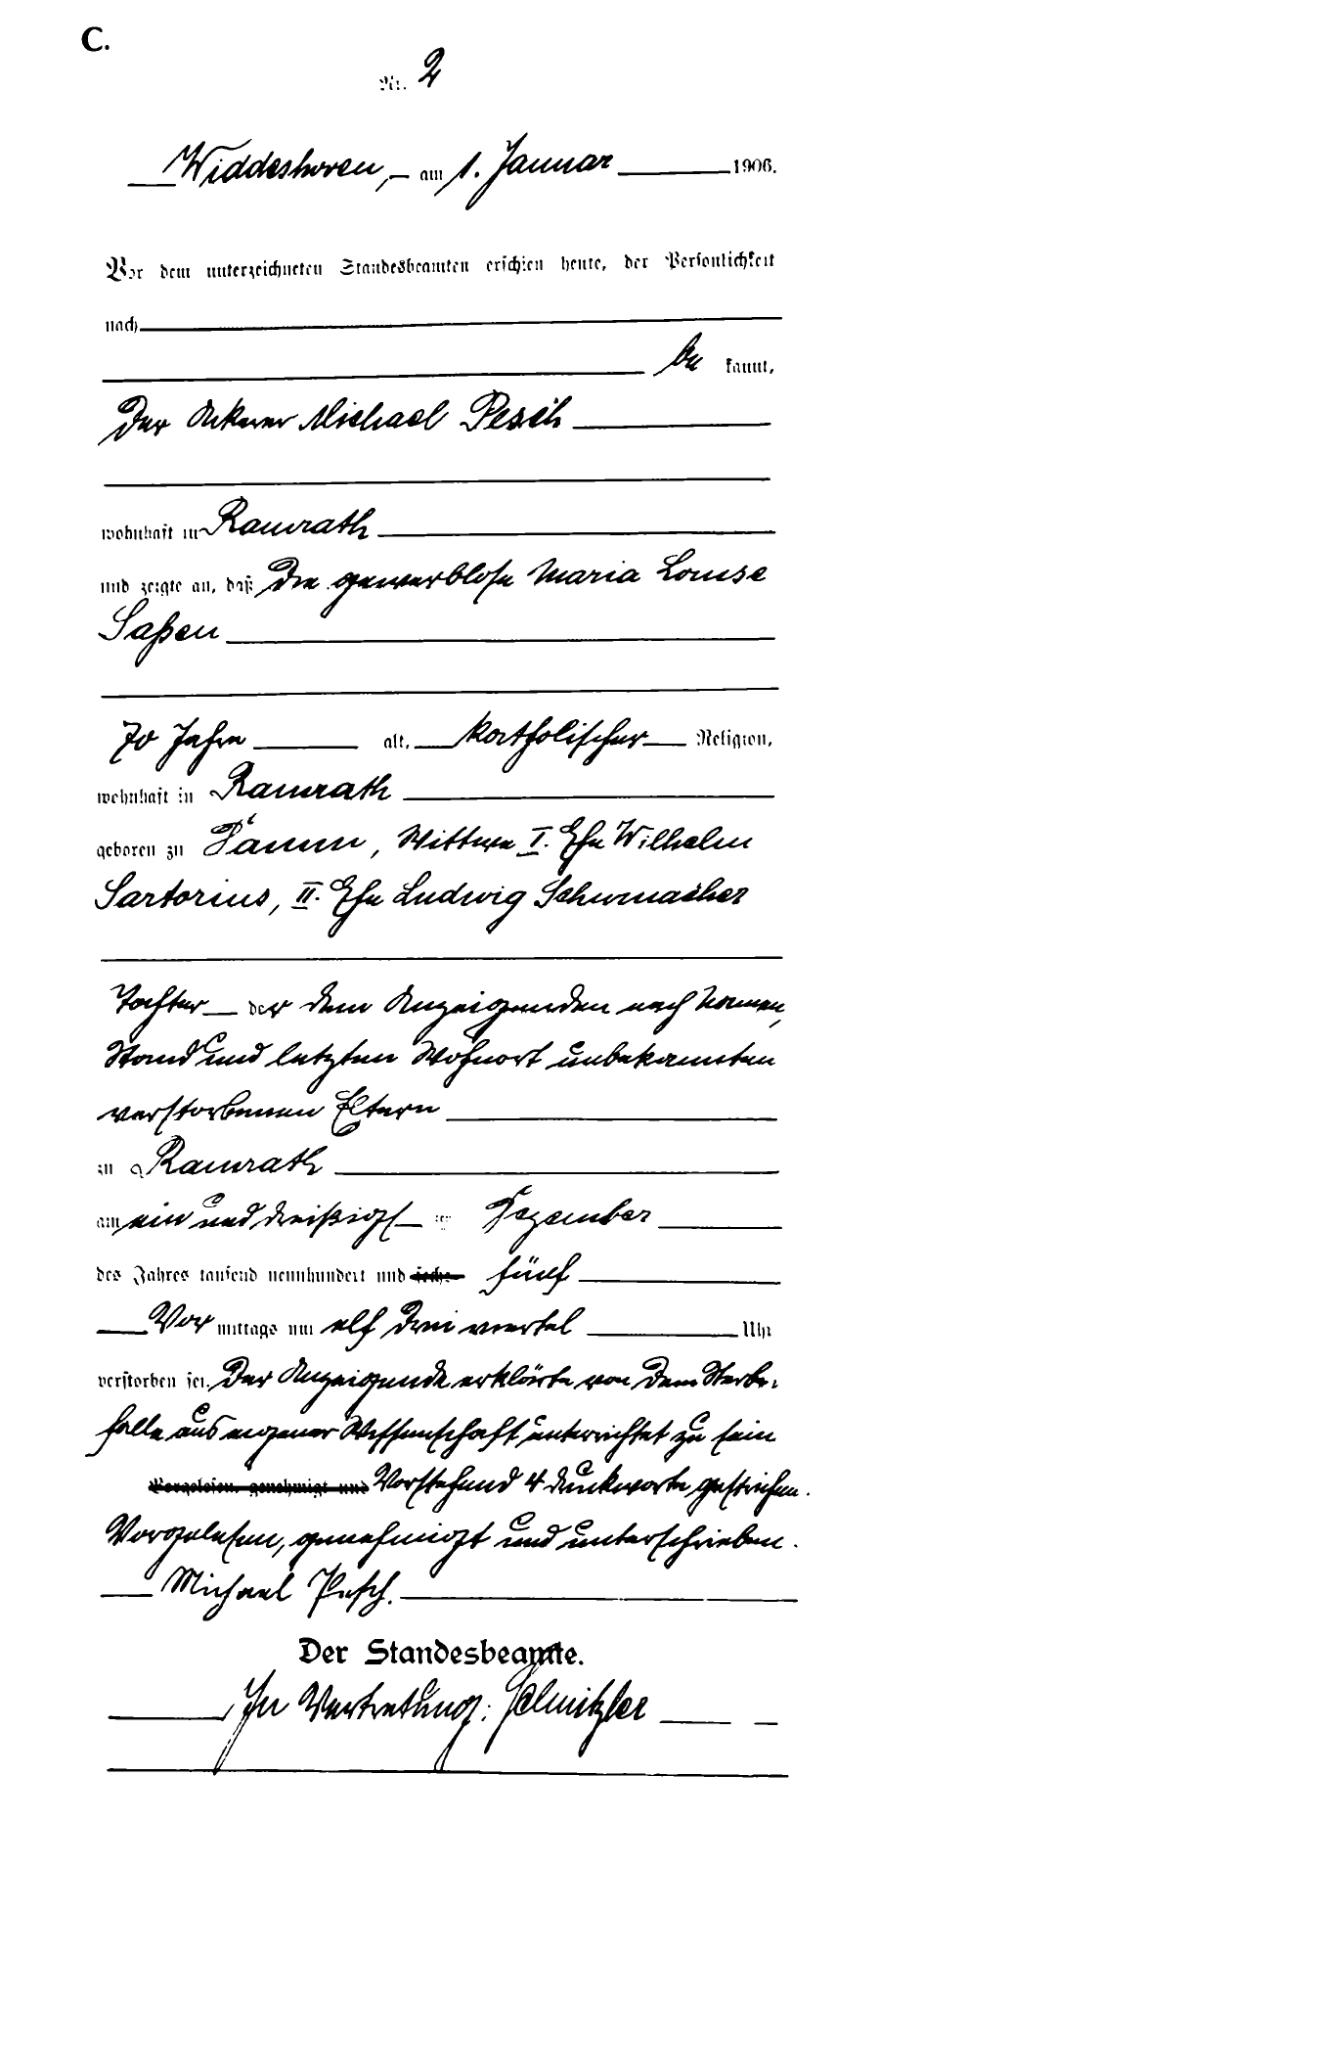 C.
Nr. 2
Widdeshoven, am 1. Januar 1906.
Vor dem unterzeichneten Standesbeamten erschien heute, der Persönlichkeit
nach
be kannt,
der Ackerer Michael Pesch
wohnhaft in Ramrath
und zeigte an, daß die gewerblose Maria Louise
Saßen
70 Jahre alt, katholischer Religion,
wohnhaft in Ramrath
geboren zu Damm, Wittwe I. Ehe Wilhelm
Sartorius, II. Ehe Ludwig Schumacher
Tochter der dem Anzeigenden nach Namen,
Stand und letzten Wohnort unbekannten
verstorbenen Eltern
zu Ramrath
am ein und dreißigsten Dezember
des Jahres tausend neunhundert und sechs fünf
Vor mittags um elf drei viertel Uhr
verstorben sei. Der Anzeigende erklärte von dem Sterbe-
falle aus eigener Wissenschaft unterrichtet zu sein
Vorgelesen, genehmigt und Vorstehend 4 Druckworte gestrichen.
Vorgelesen, genehmigt und unterschrieben.
Michael Pesch.
Der Standesbeamte.
In Vertretung: Schnitzler